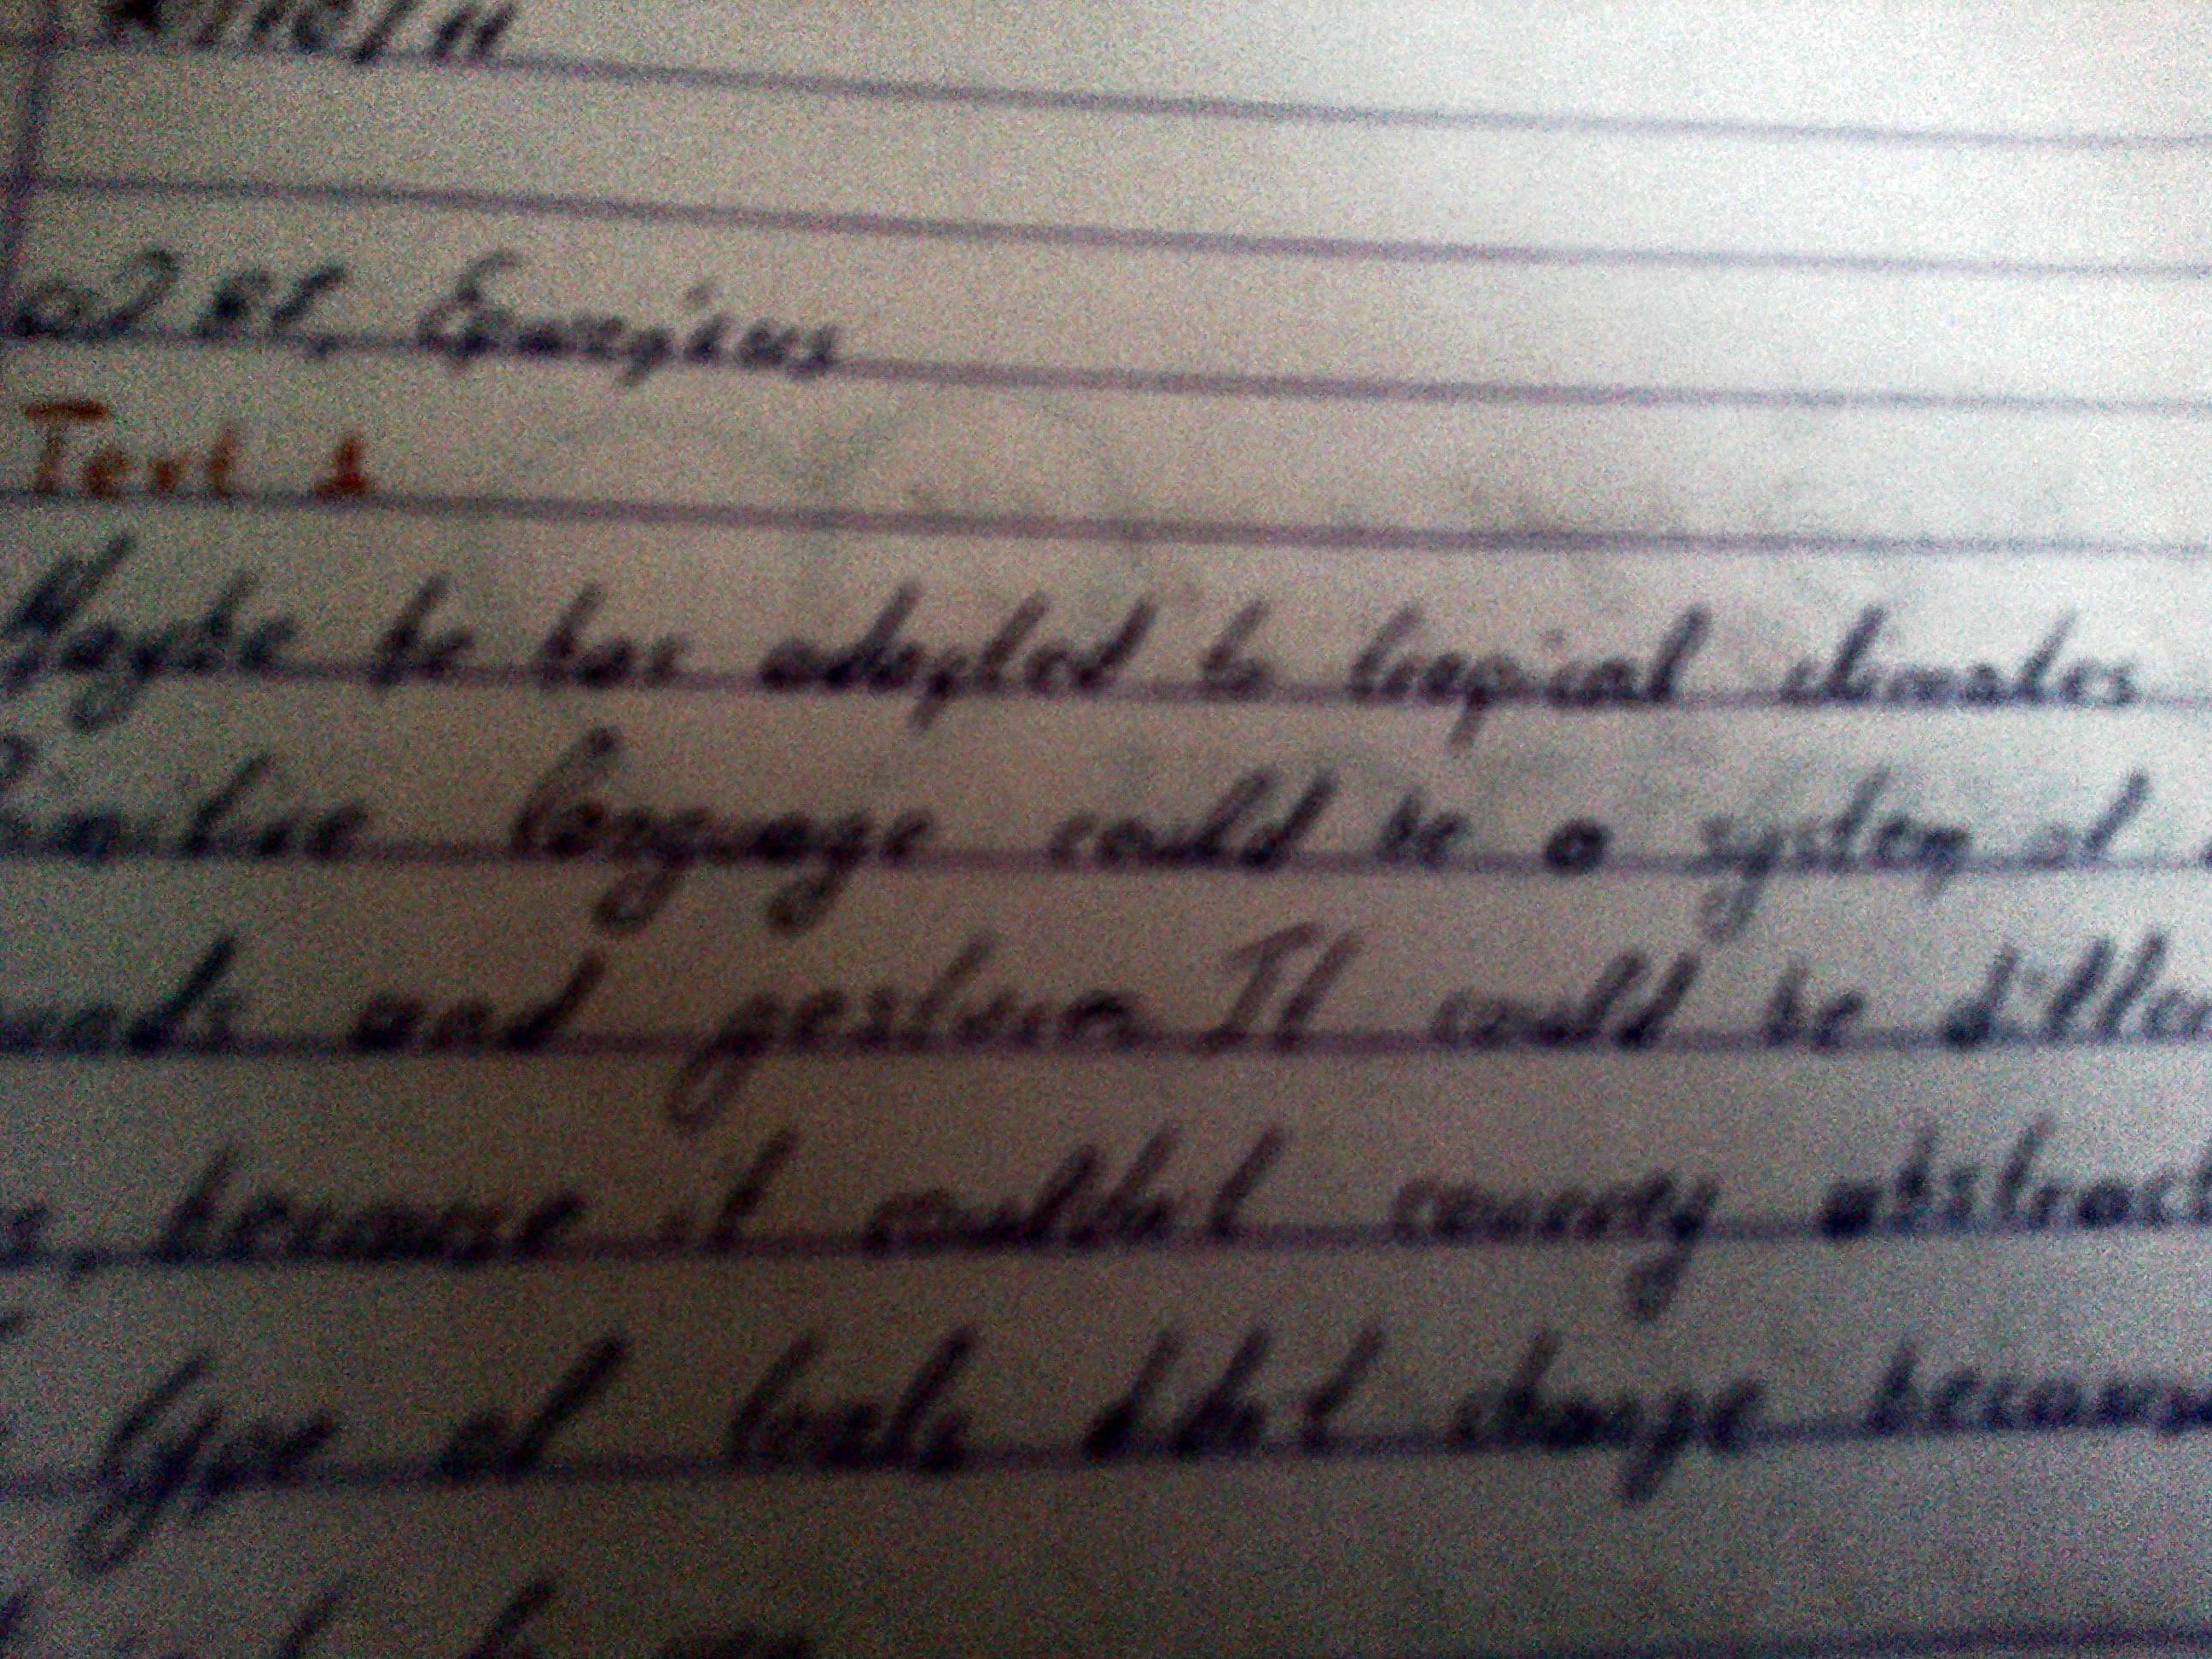 Text 1
Maybe he has adapted to tropical climates
language could be a system of
and gestures It could be differ
because it couldn't convey abstract
type of tools didn't change because